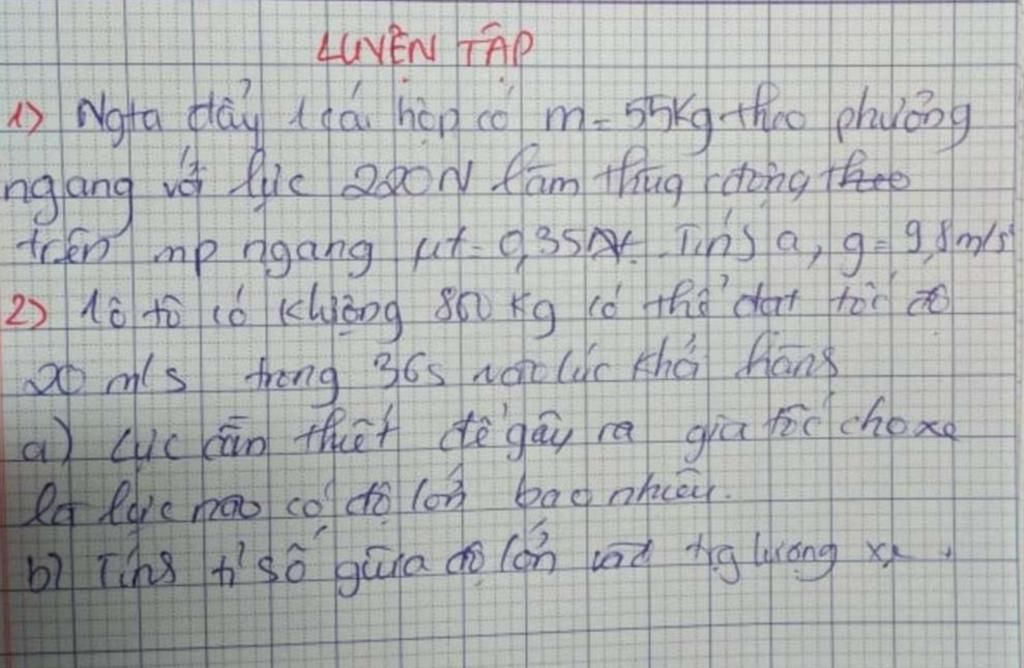 LUYỆN TẬP
1) Ngta đẩy 1 cái hộp có m = 55kg theo phương
ngang với lực 220N làm thùg cđộng theo
trên mp ngang μt = 0,35 Tính a, g = 9,8m/s²
2) 1 ô tô có klượng 800 kg có thể đạt tốc độ
20 m/s trong 36s vào lúc khởi hành
a) Lực cần thiết để gây ra gia tốc cho xe
là lực nào có độ lớn bao nhiêu.
b) Tính tỉ số giữa độ lớn và tṛg lượng xe.